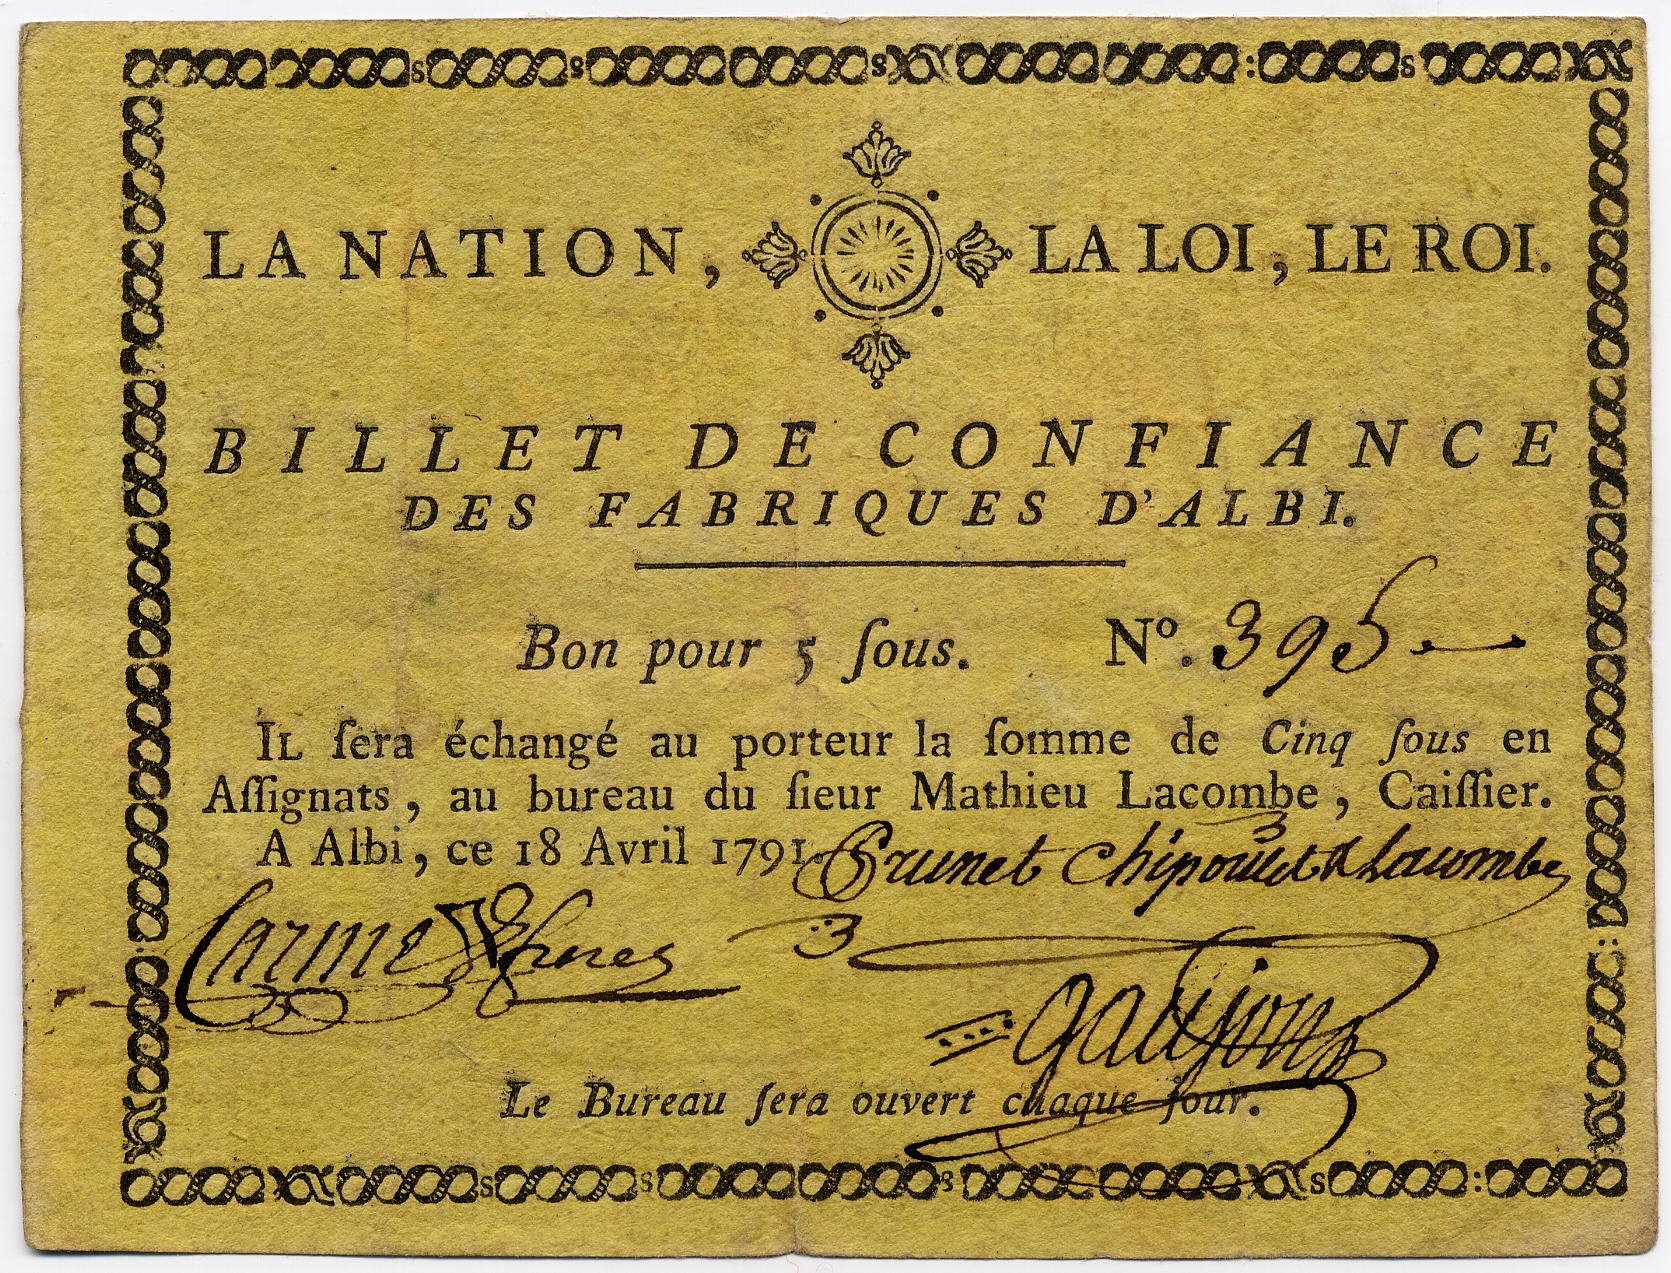 LA NATION, LA LOI, LE ROI.
BILLET DE CONFIANCE
DES FABRIQUES D'ALBI.
Bon pour 5 ſous. Nº. 395
IL ſera échangé au porteur la ſomme de Cinq ſous en
Aſſignats, au bureau du ſieur Mathieu Lacombe, Caiſſier.
A Albi, ce 18 Avril 1791. Brunet Chipoulet & Lacombe
Carme
gaujon
Le Bureau ſera ouvert chaque jour.